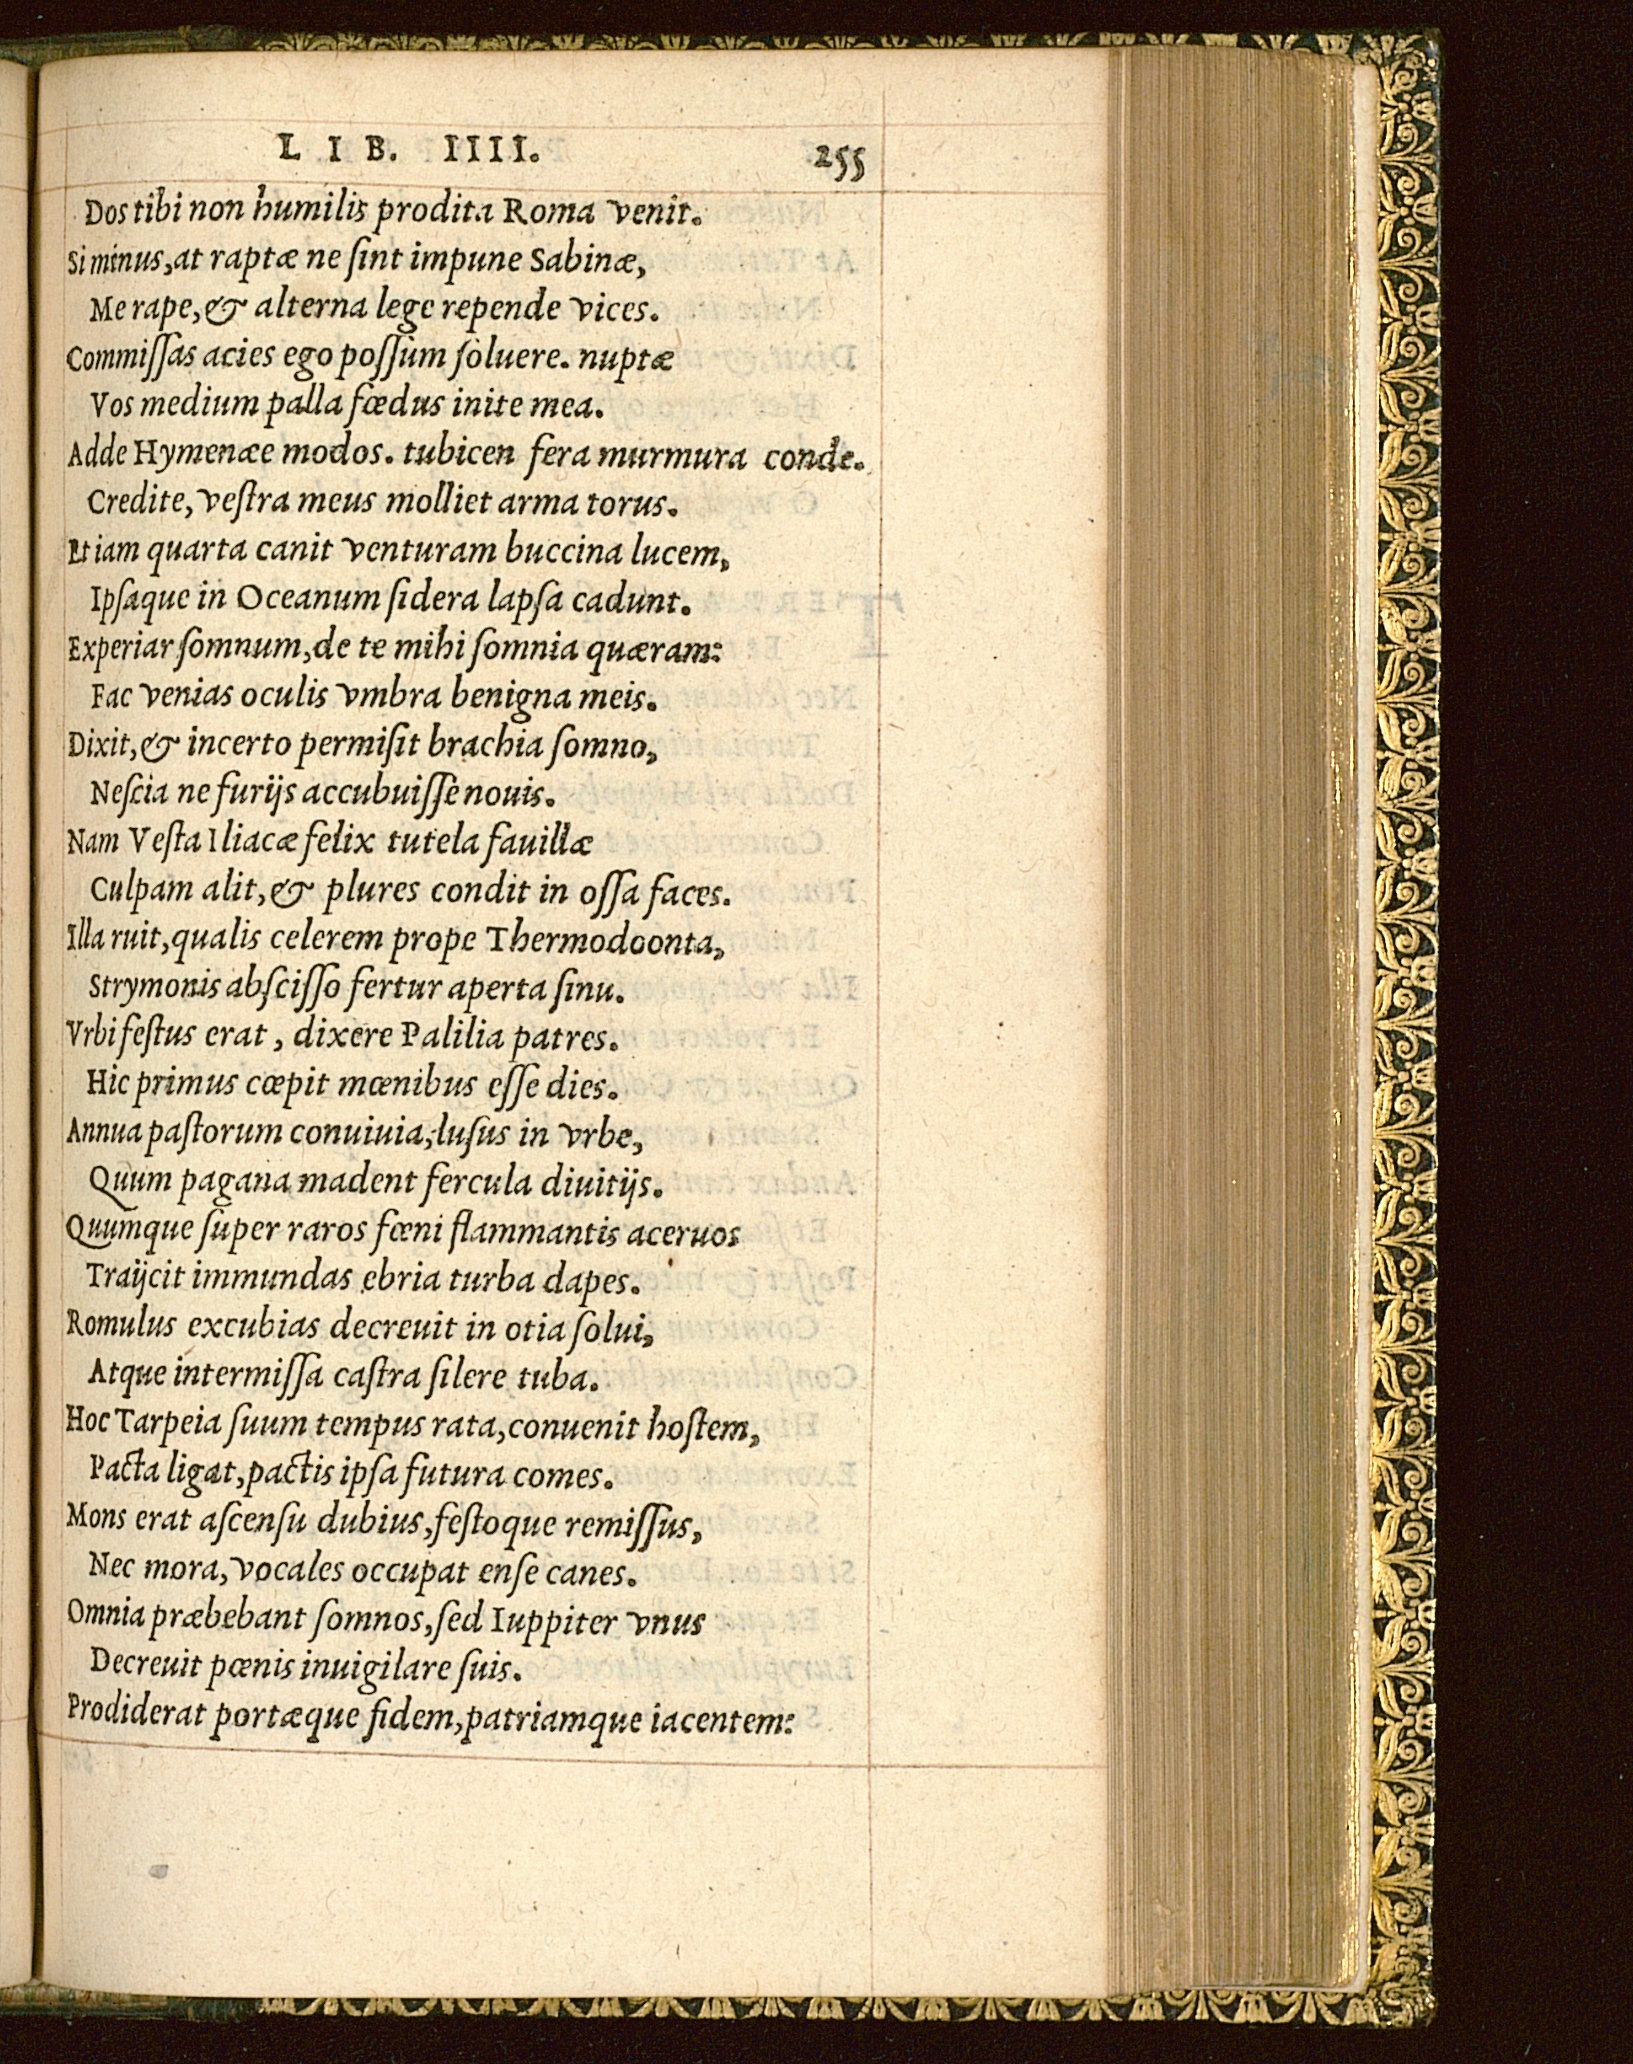 LIB. IIII. 255
Dos tibi non humilis prodita Roma venit.
Si minus, at raptæ ne ſint impune Sabinæ,
Me rape, & alterna lege repende vices.
Commiſſas acies ego poſſum ſoluere. nuptæ
Vos medium palla fœdus inite mea.
Adde Hymenæe modos. tubicen fera murmura conde.
Credite, veſtra meus molliet arma torus.
Et iam quarta canit venturam buccina lucem,
Ipſaque in Oceanum ſidera lapſa cadunt.
Experiar ſomnum, de te mihi ſomnia quæram:
Fac venias oculis vmbra benigna meis.
Dixit, & incerto permiſit brachia ſomno,
Neſcia ne furijs accubuiſſe nouis.
Nam Veſta Iliacæ felix tutela fauillæ
Culpam alit, & plures condit in oſſa faces.
Illa ruit, qualis celerem prope Thermodoonta,
Strymonis abſciſſo fertur aperta ſinu.
Vrbi feſtus erat, dixere Palilia patres.
Hic primus cœpit mœnibus eſſe dies.
Annua paſtorum conuiuia, luſus in vrbe,
Quum pagana madent fercula diuitijs.
Quumque ſuper raros fœni flammantis aceruos
Traijcit immundas ebria turba dapes.
Romulus excubias decreuit in otia ſolui,
Atque intermiſſa caſtra ſilere tuba.
Hoc Tarpeia ſuum tempus rata, conuenit hoſtem,
Pacta ligat, pactis ipſa futura comes.
Mons erat aſcenſu dubius, feſtoque remiſſus,
Nec mora, vocales occupat enſe canes.
Omnia præbebant ſomnos, ſed Iuppiter vnus
Decreuit pœnis inuigilare ſuis.
Prodiderat portæque fidem, patriamque iacentem: